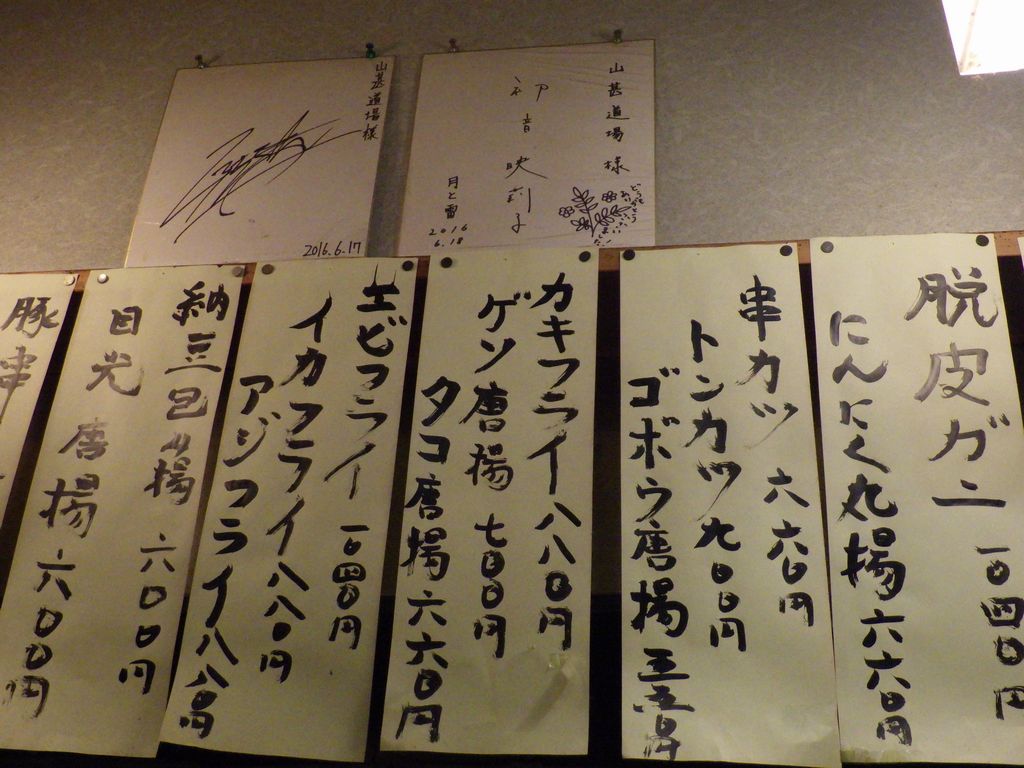 山甚道場様
初音映莉子
月と雷
2016
6.18
どうも
ありがとう
ございました!
山甚道場様
2016.6.17
脱皮ガニ 一〇四〇円
にんにく丸揚 六六〇円
串カツ 六六〇円
トンカツ 九〇〇円
ゴボウ唐揚 五五〇円
カキフライ 八八〇円
ゲソ唐揚 七〇〇円
タコ唐揚 六六〇円
エビフライ 一〇四〇円
イカフライ 八八〇円
アジフライ 八八〇円
納豆包み揚 六〇〇円
目光唐揚 六〇〇円
豚串